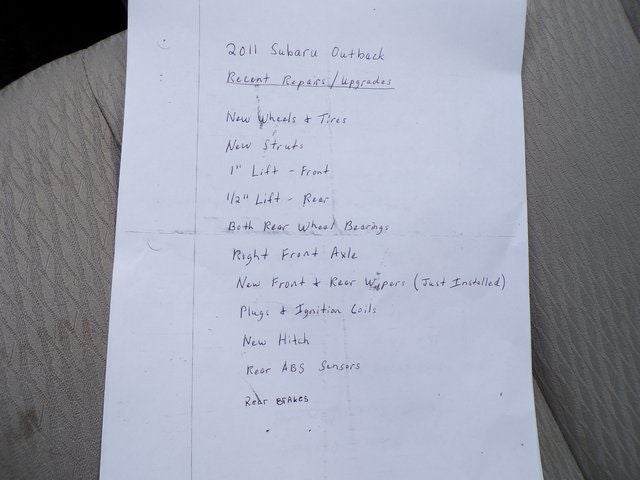 2011 Subaru Outback
Recent Repairs/Upgrades
New Wheels & Tires
New Struts
1" Lift - Front
1/2" Lift - Rear
Both Rear Wheel Bearings
Right Front Axle
New Front & Rear Wipers (Just Installed)
Plugs & Ignition Coils
New Hitch
Rear ABS Sensors
Rear BrAkes